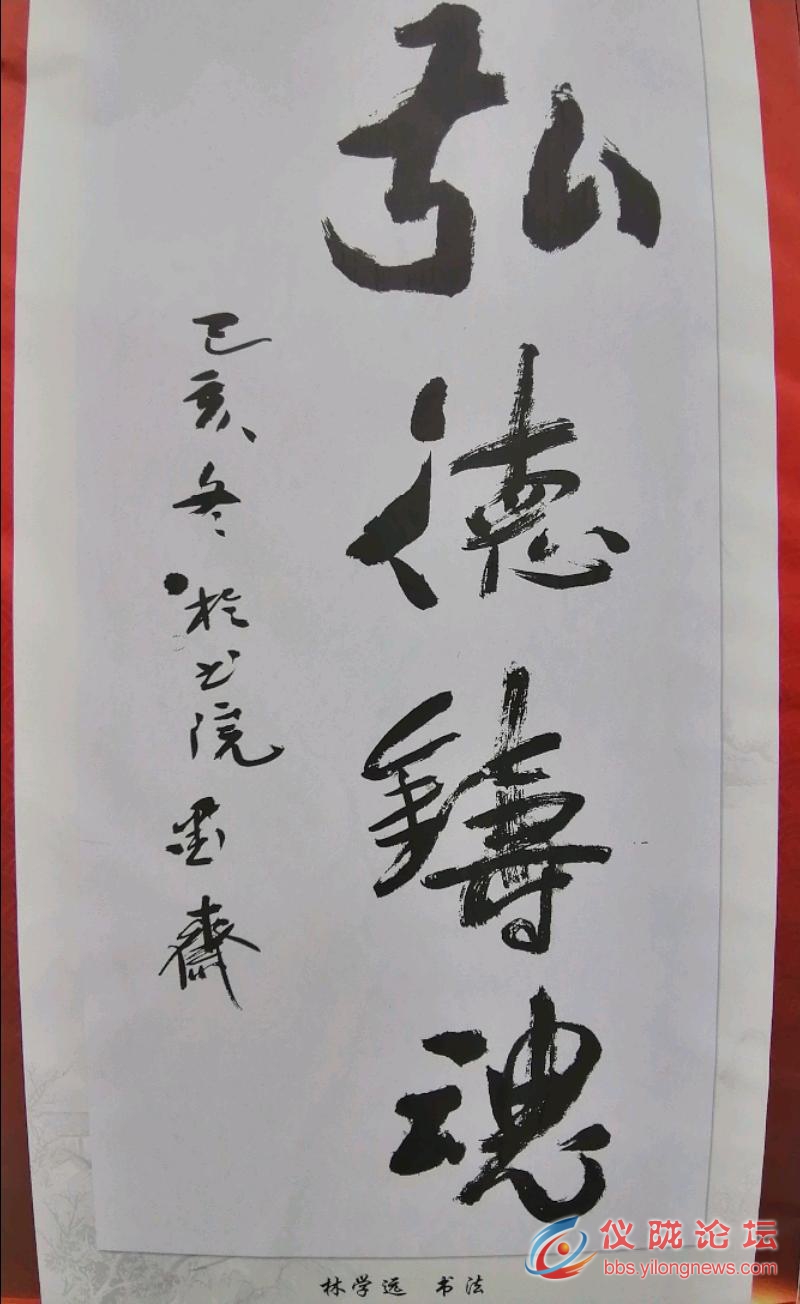 弘德铸魂
己亥冬於书院墨斋
林学远 书法
仪陇论坛
bbs.yilongnews.com